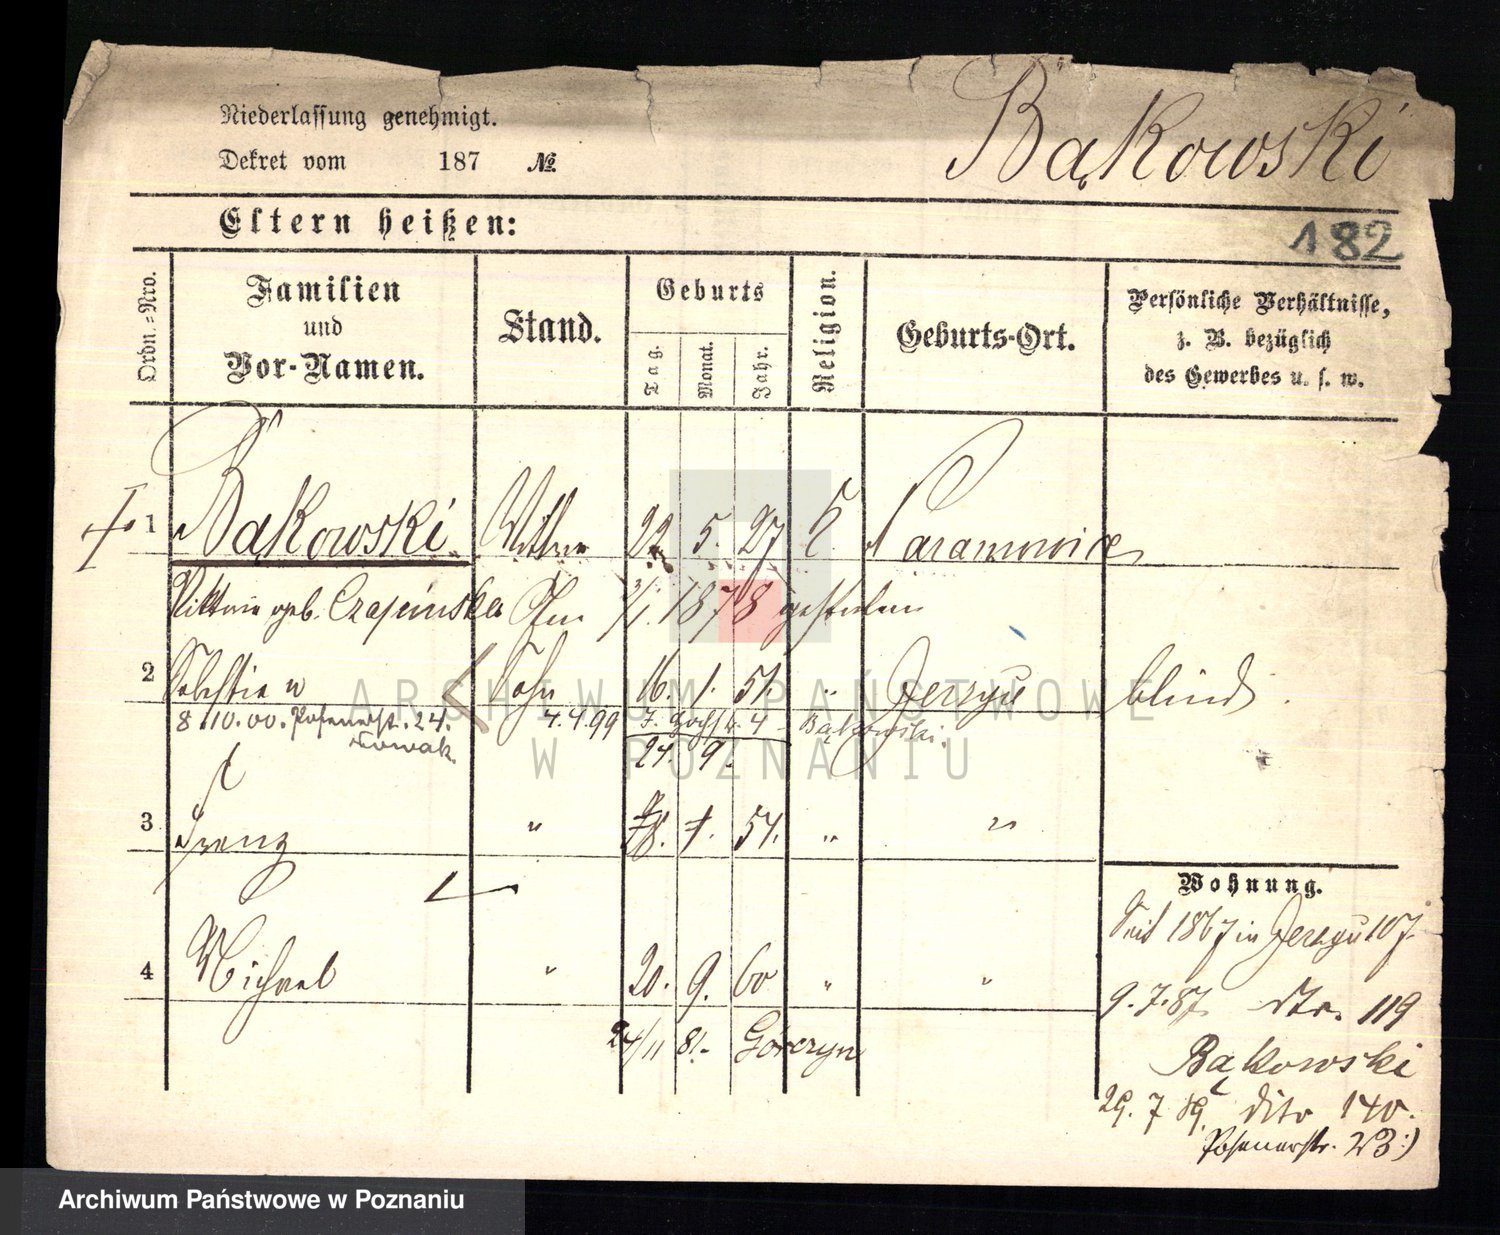 Niederlassung genehmigt.
Dekret vom 187 №
Bąkowski
Eltern heißen:
182
Ordn.-Nro.
Familien
und
Vor-Namen.
Stand.
Geburts
Tag.
Monat.
Jahr.
Religion.
Geburts-Ort.
Persönliche Verhältnisse,
z. B. bezüglich
des Gewerbes u. s. w.
1 Bąkowski Wittwe 22 5. 27 k.
Viktoria geb. Czapinska 3/1. 1878 gestorben
2 Sohn 16. 1. 51. " Jerzyce blind
8.10.00. Posenerstr. 24. 4.4.99
Nowak. Bąkowski.
24. 9.
3 Franz " 18. 1. 54. " "
4 Michael " 20. 9. 60 " "
24/11 81.- Górczyn
Wohnung.
Seit 1867 in Jerzyce 107.
9.7.87. dto. 119
Bąkowski
29. 7 89. dito 140.
Posenerstr. 23:)
ARCHIWUM PAŃSTWOWE
W POZNANIU
Archiwum Państwowe w Poznaniu